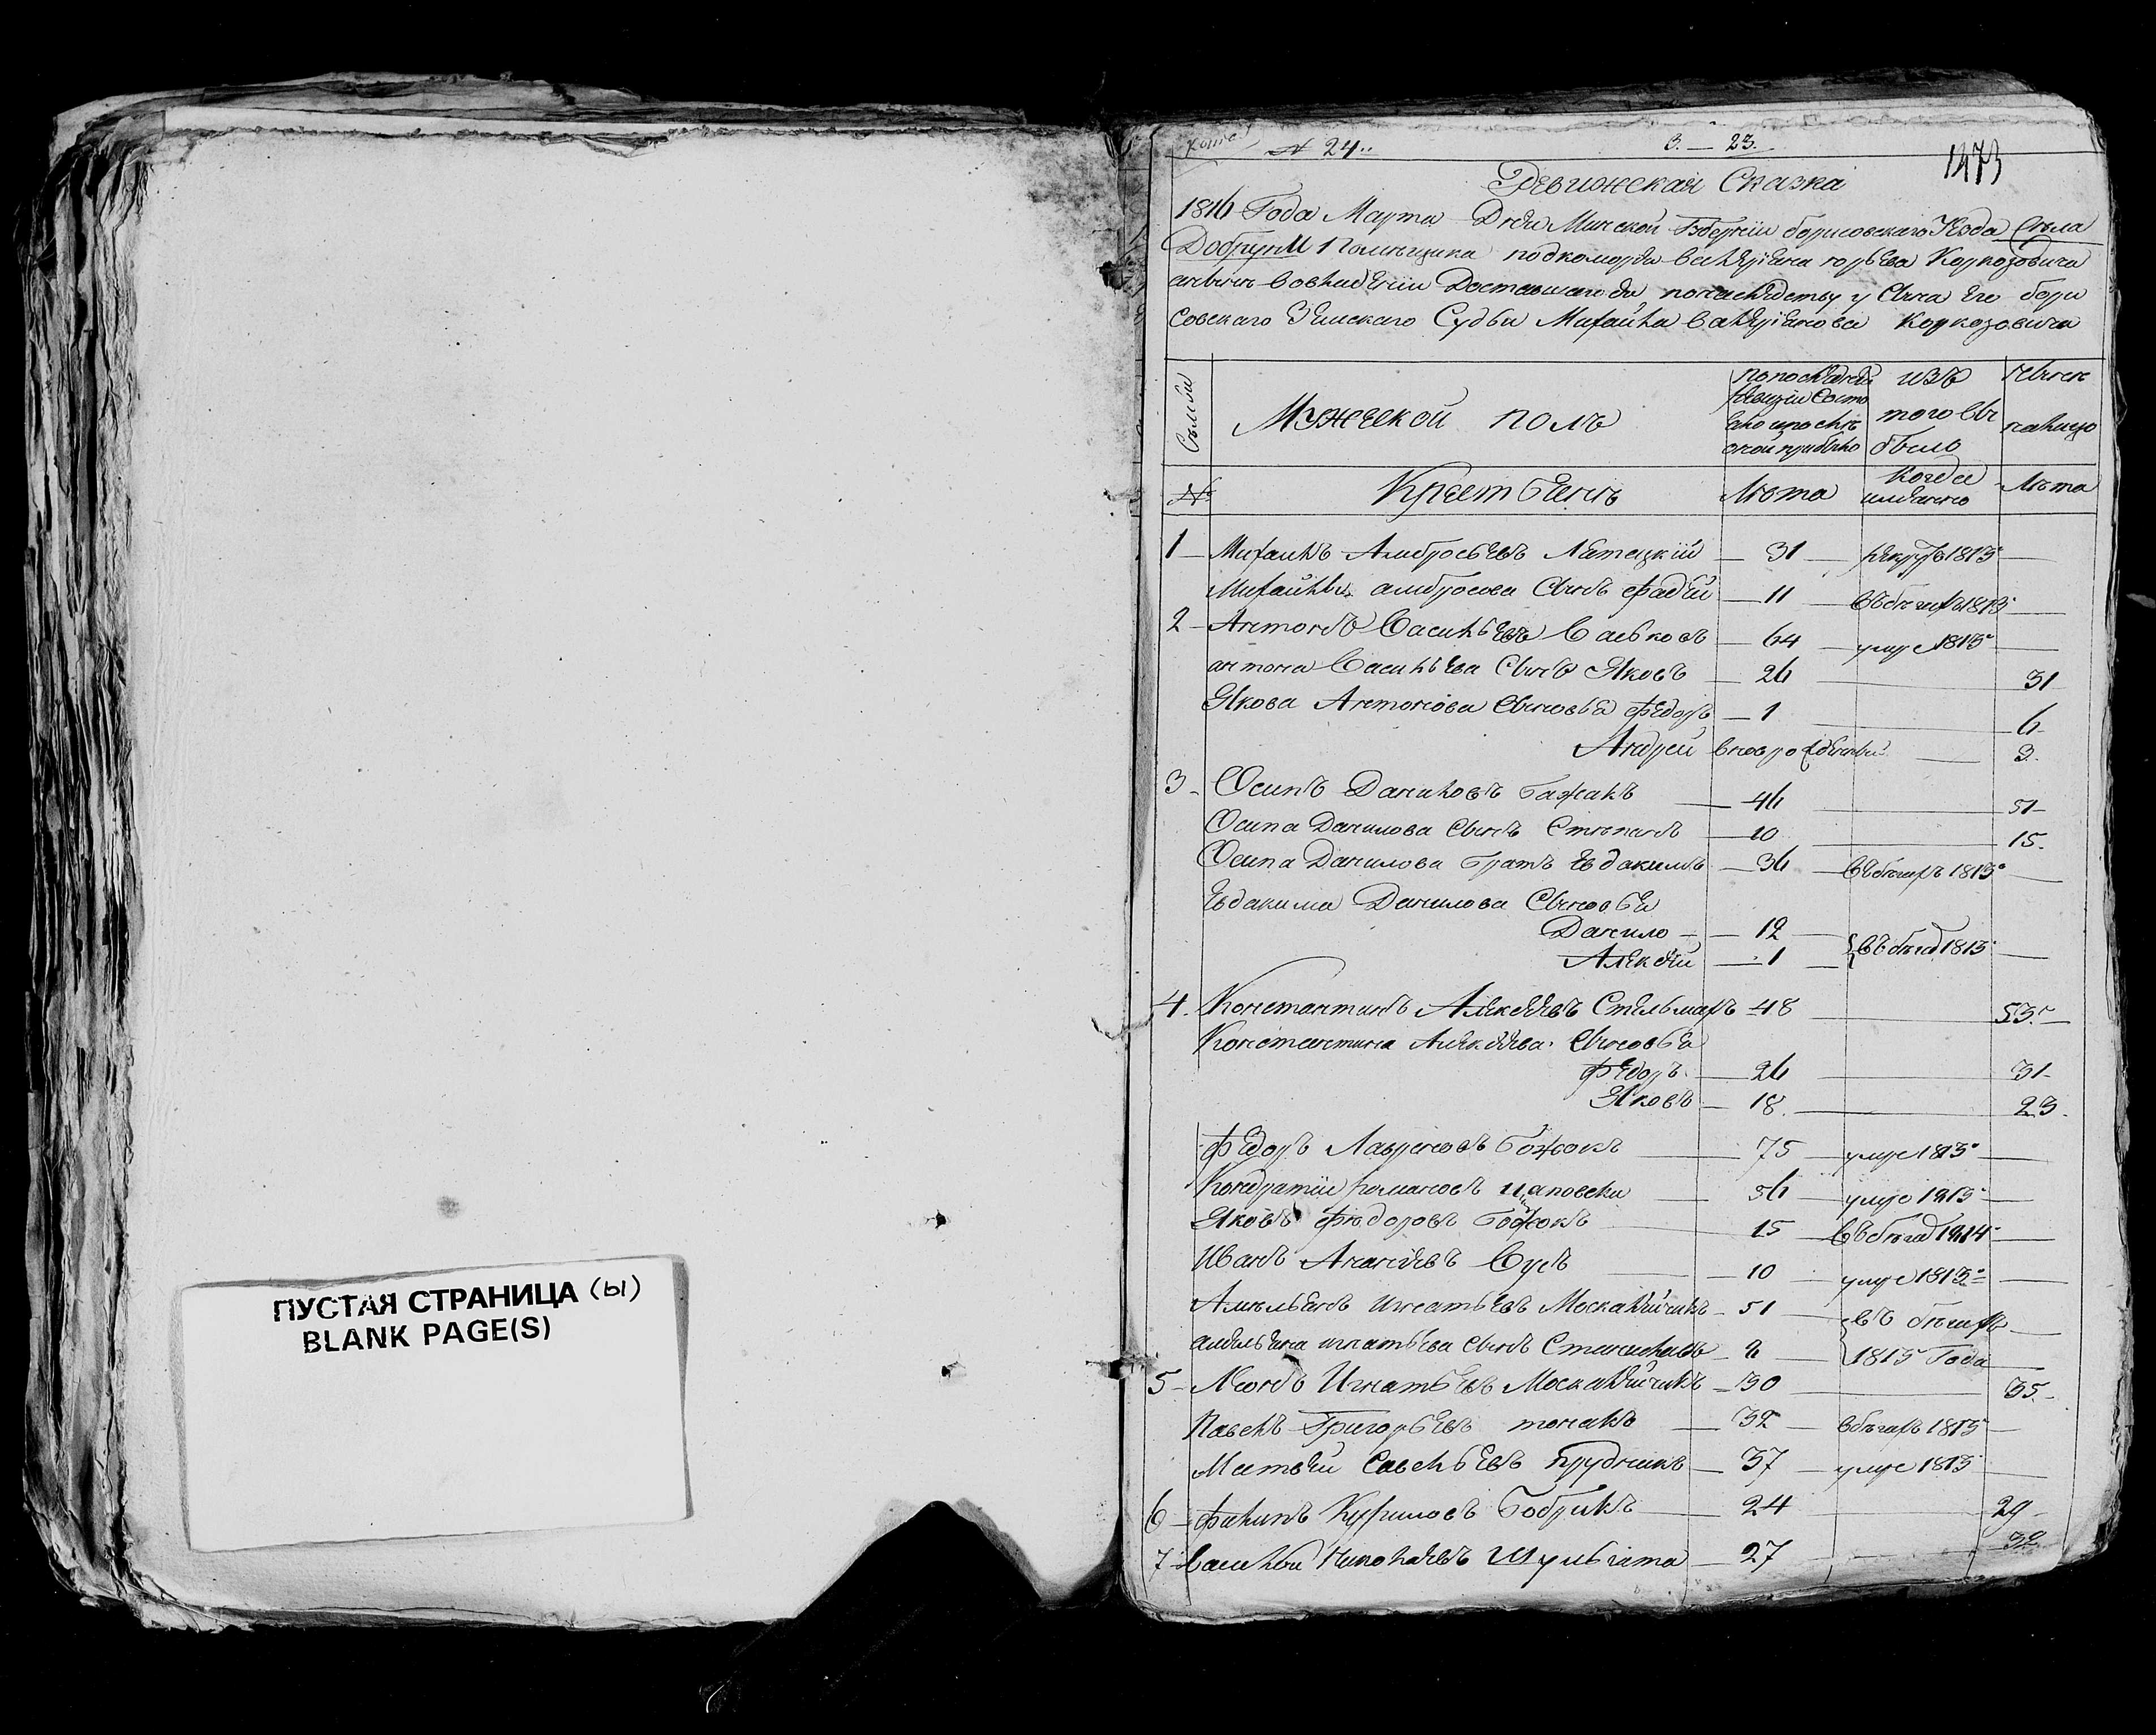 ПУСТАЯ СТРАНИЦА (ы)
BLANK PAGE(S)
№ 24
3. — 23.
1473
Ревижская Сказка
1816 Года Марта Дня Минской Губернии борисовского Уезда Села
Помещика подкоморія валеріана юрьева Коркозовича
Доставшагося понаследству у Сына его бори
совскаго Земскаго Судьи Михайла валеріанова Коркозовича
Семьи
Мужеской полъ
попоследней ревизіи состо
яло и после оной прибыло
изъ того вы было
Ныне налицо
№
Крестьянъ
Лета
Когда именно
Лета
1 Михайлъ Амбросьевъ Летецкій 31 рекрутъ 1813
Михайлы амбросова Сынъ фадей 11 въ бегахъ 1813
2 Антонъ Васильевъ Савковъ 64 умре 1813
антона Васильева Сынъ Яковъ 26 31
Якова Антонова Сыновья федоръ 1 6
Андрей вноврожденный 3
3 Осипъ Даниловъ Бажакъ 46 51
Осипа Данилова Сынъ Степанъ 10 15
Осипа Данилова братъ Евдакимъ 36 въ бегахъ 1813
Евдакима Данилова Сыновья
Данило 12
Алексей 1 въ бегахъ 1813
4 Константинъ Алексеевъ Стельмахъ 48 53
Константина Алексеева Сыновья
федоръ 26 31
Яковъ 18 23
федоръ Лавреновъ Божокъ 75 умре 1813
Кондратий романовъ 56 умре 1813
Яковъ федоровъ Божокъ 15 въ бегах 1814
Иванъ Ананіевъ 10 умре 1813
Амельянъ игнатьевъ Москалейчикъ 51 въ бегахъ
амельяна игнатьева сынъ Станиславъ 1813 Года
5 Леонъ Игнатьевъ Москалейчикъ 30 35
Павелъ Григорьевъ 32 в бегахъ 1813
Матвей Савельевъ Прудникъ 37 умре 1813
6 филипъ Кириловъ Бобрикъ 24 29
7 Василей Николаевъ 27 32